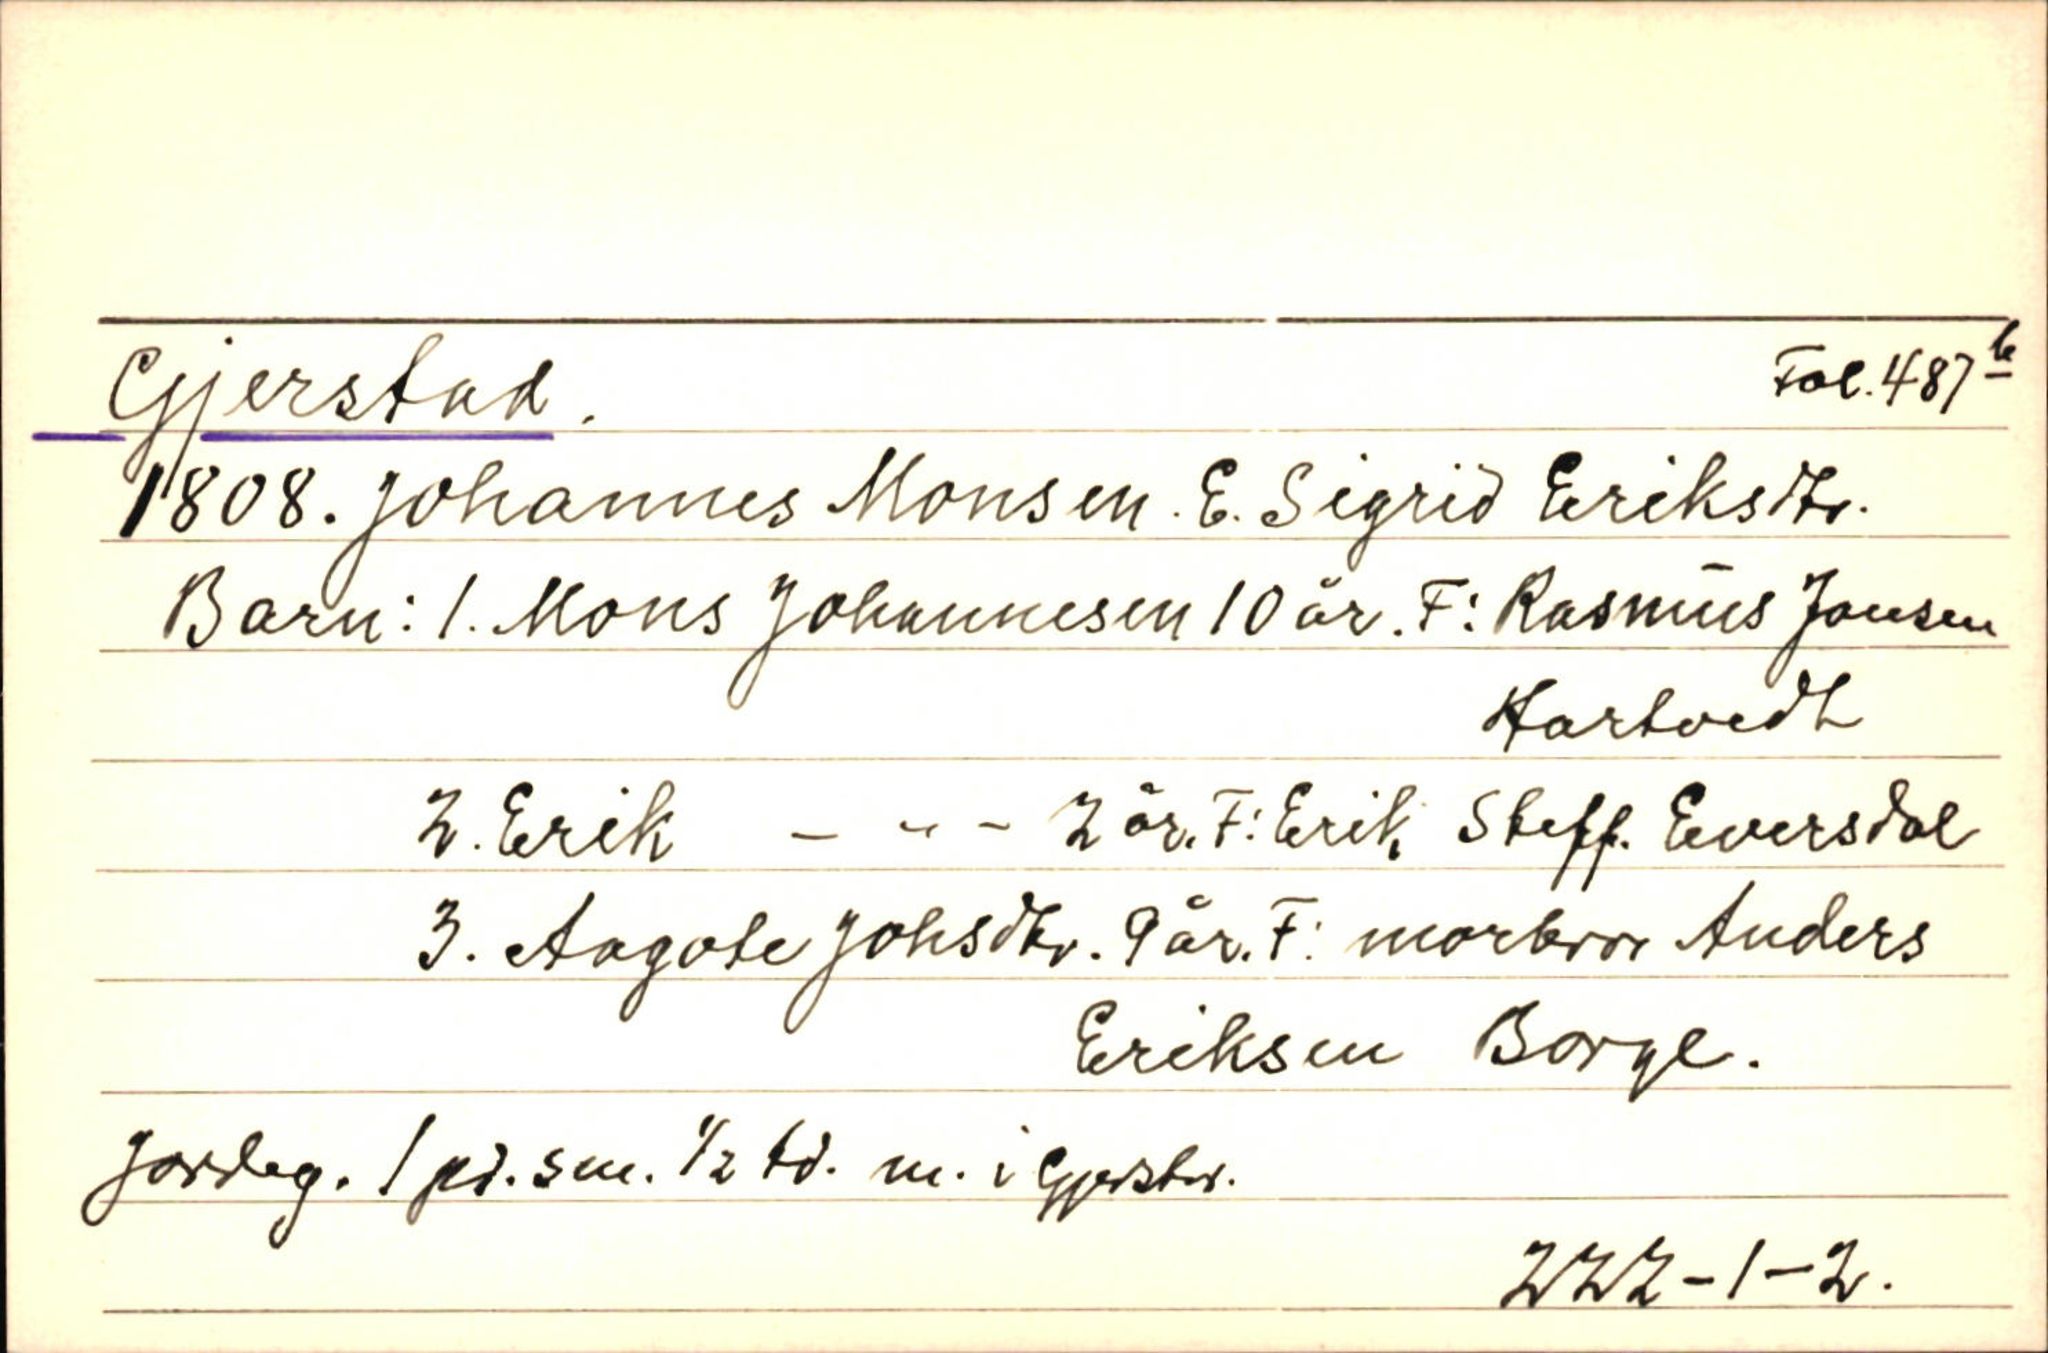 Gjerstad. Fol. 487 b
1808. Johannes Monsen. E. Sigrid Eriksdtr.
Barn: 1. Mons Johannesen 10 år. F: Rasmus Jansen
Hartvedt
2. Erik - " - 2 år. F: Erik Steff. Eversdal
3. Aagote Johsdtr. 9 år. F: morbror Anders
Eriksen Borge.
Jordeg. 1 pd. sm. 1/2 td. m. i Gjerstad.
222-1-2.